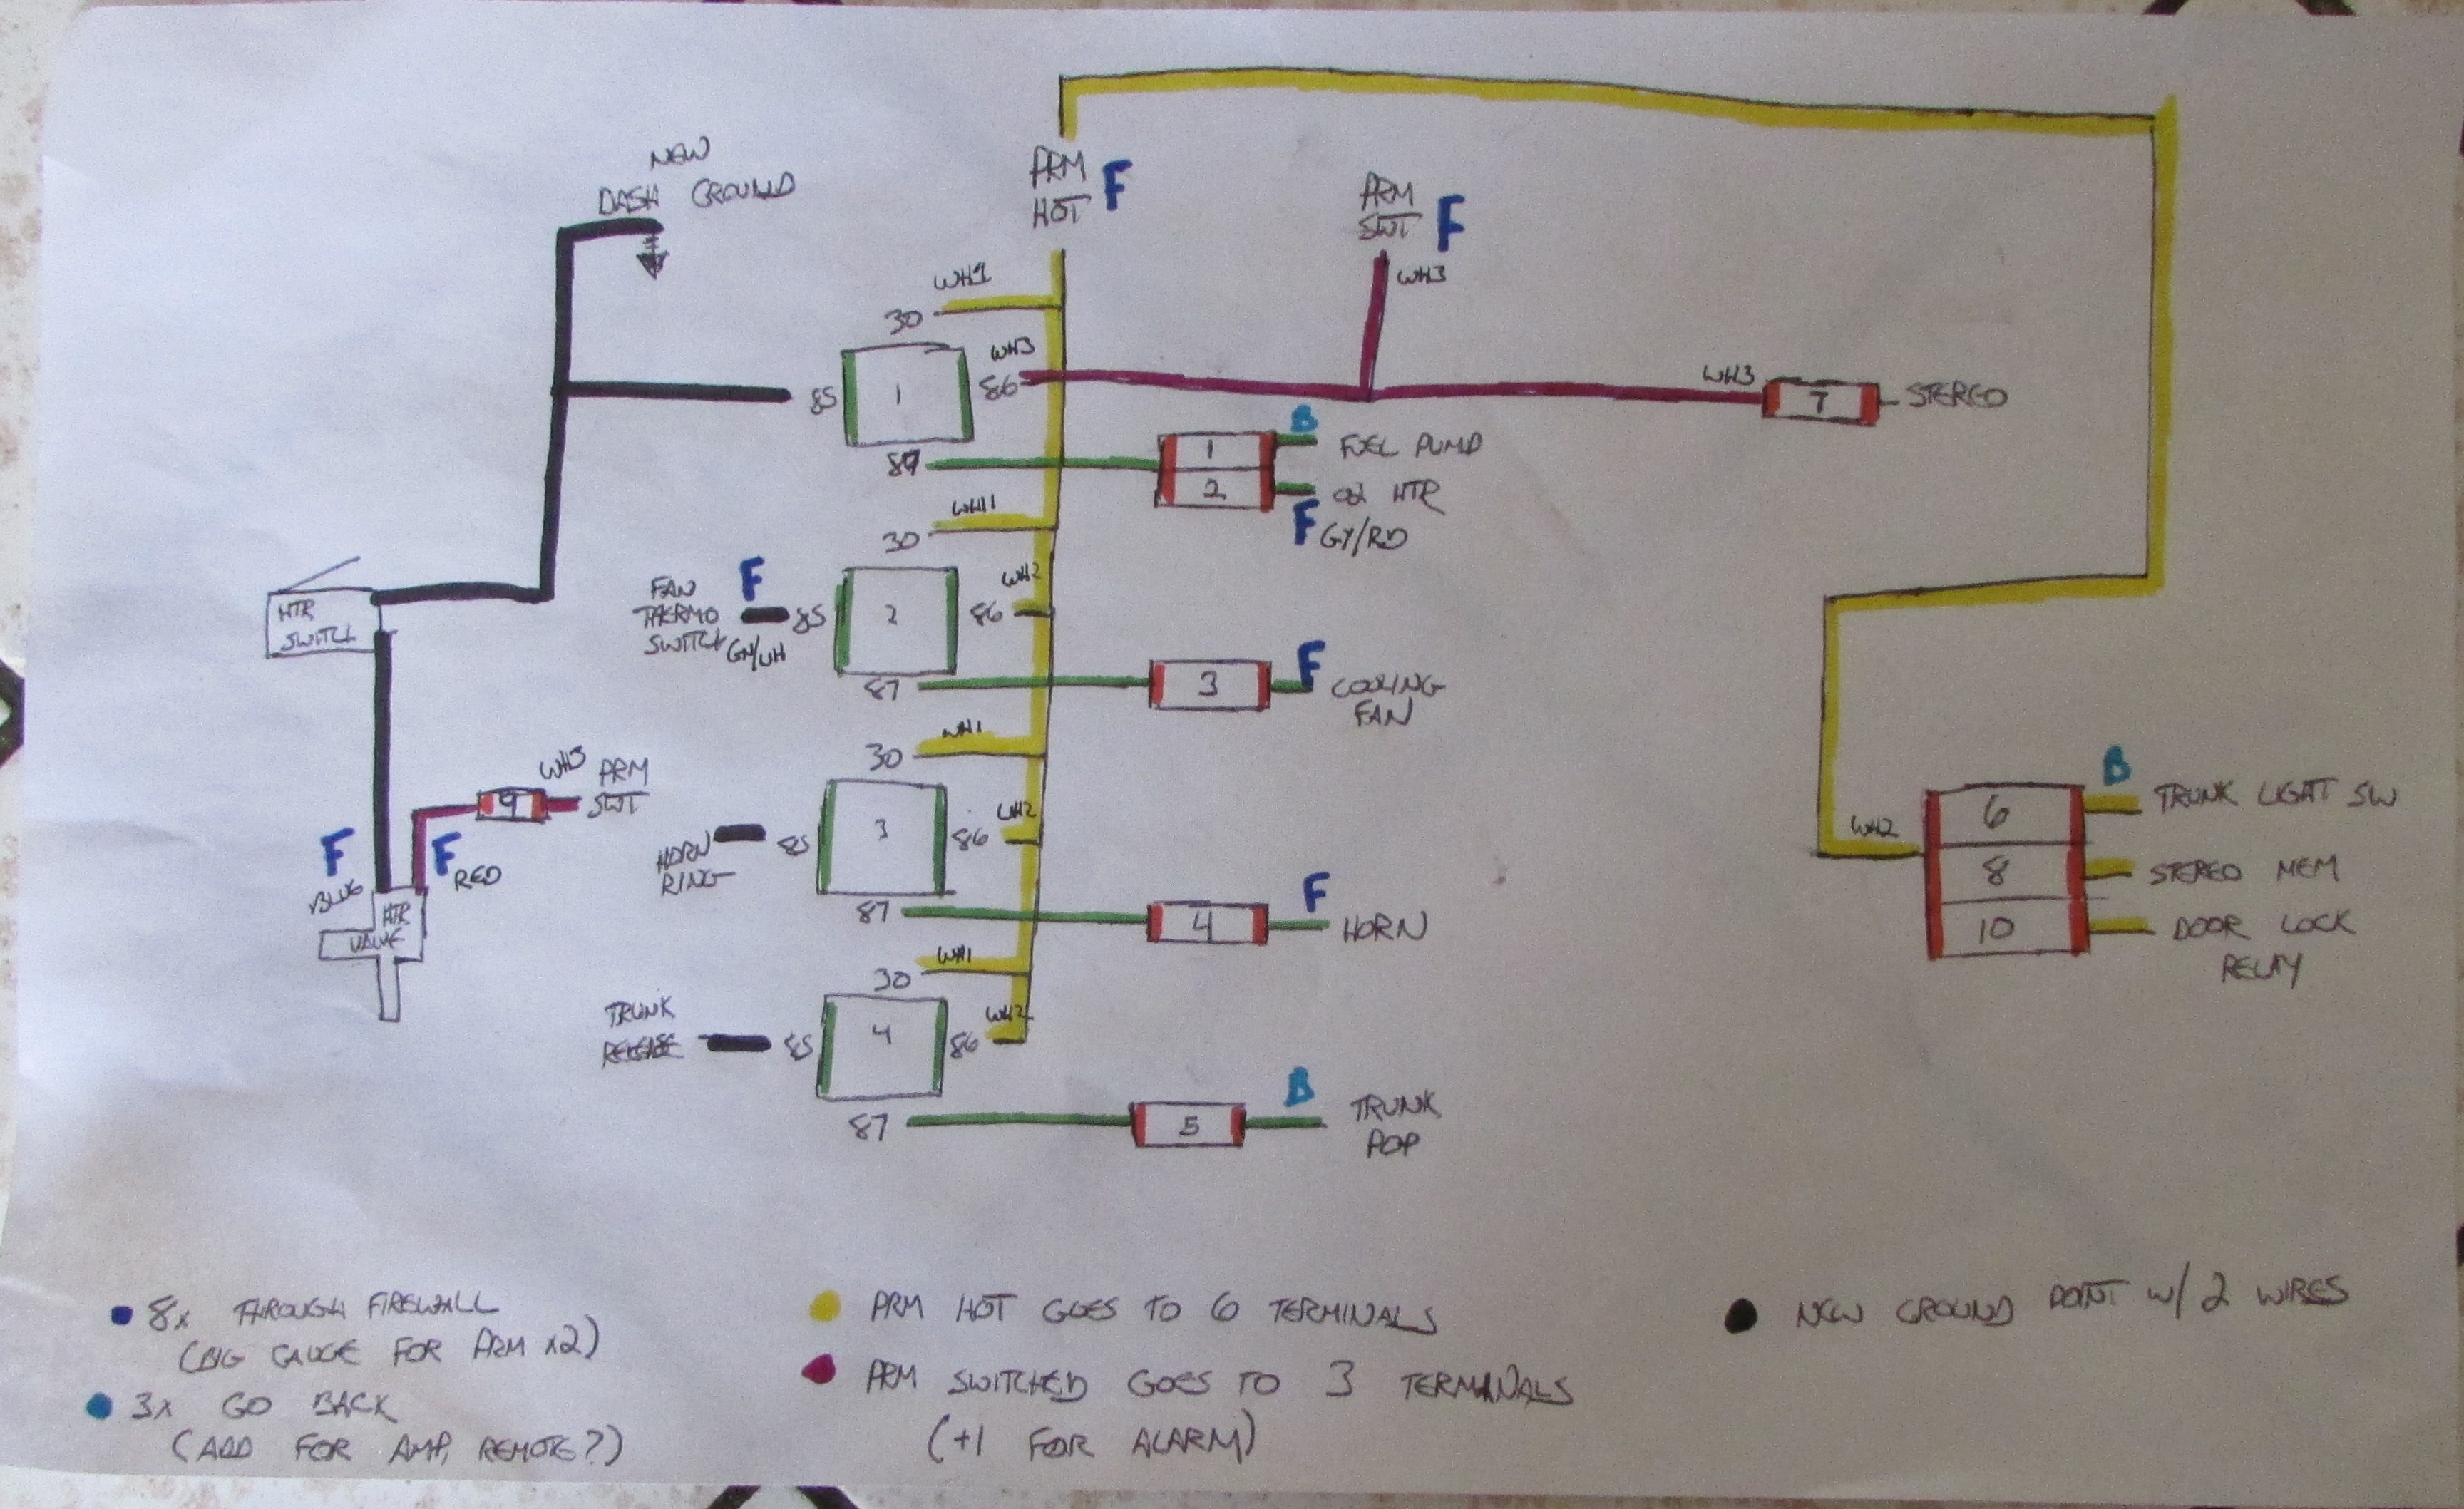 NEW
DASH GROUND
PRM
HOT
F
PRM
SWT
F
WH3
WH1
30
WH3
85
1
86
WH3
7
STEREO
87
1
B
FUEL PUMP
2
O2 HTR
F GY/RD
WH1
30
HTR
SWITCH
FAN
THERMO
SWITCH
GN/WH
F
85
2
WH2
86
87
3
F
COOLING
FAN
WH1
30
WH3
PRM
SWT
9
F
BLUE
F
RED
HTR
VALVE
HORN
RING
85
3
WH2
86
87
4
F
HORN
WH1
30
TRUNK
RELEASE
85
4
WH2
86
87
5
B
TRUNK
POP
WH2
6
B
TRUNK LIGHT SW
8
STEREO MEM
10
DOOR LOCK
RELAY
8x THROUGH FIREWALL
(BIG GAUGE FOR PRM x2)
3x GO BACK
(ADD FOR AMP, REMOTE?)
PRM HOT GOES TO 6 TERMINALS
PRM SWITCHED GOES TO 3 TERMINALS
(+1 FOR ALARM)
NEW GROUND POINT W/ 2 WIRES